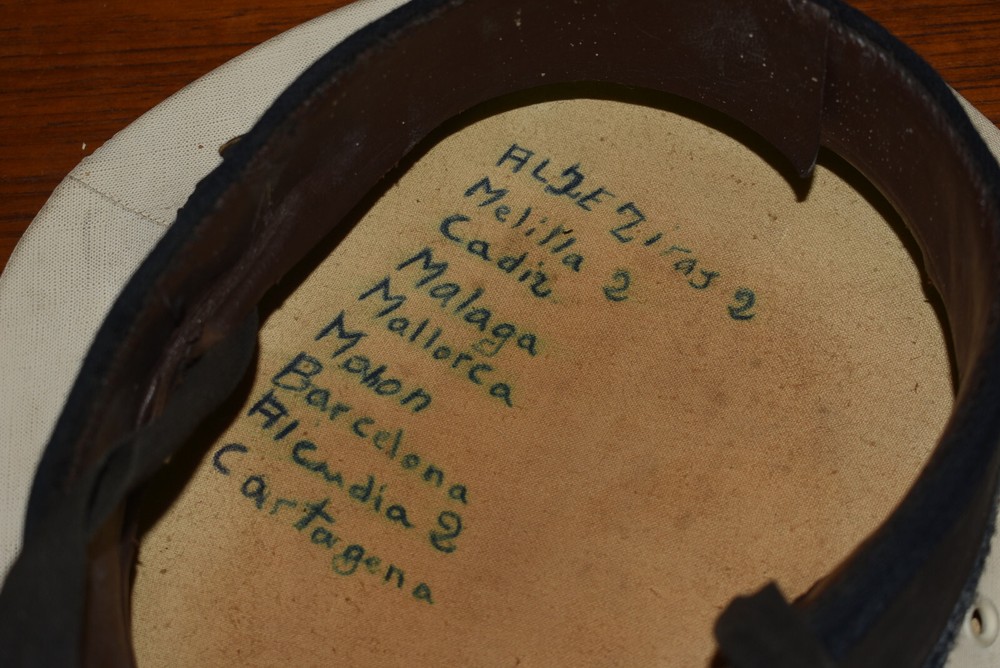 ALJEZiras 2
Melilla 2
Cadiz
Malaga
Mallorca
Mahon
Barcelona
Alcudia 2
Cartagena